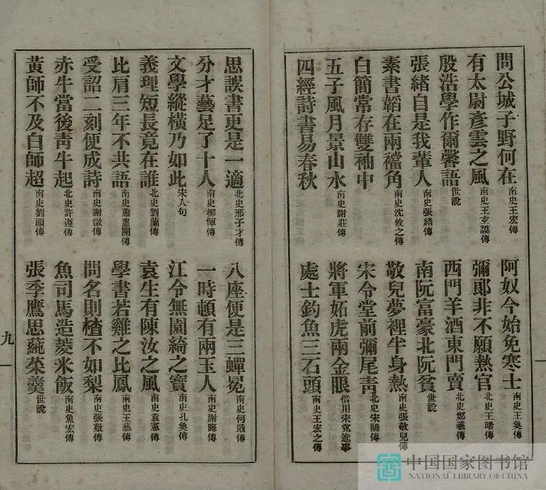 問公城子野何在南史王宏傳
阿奴今始免寒士南史王奐傳
有太尉彥雲之風南史王玄謨傳
彌郎非不願熱官北史王晞傳
殷浩學作爾馨語世說
西門羊酒東門賣北史鄭羲傳
張緒自是我輩人南史張緒傳
南阮富豪北阮貧世說
素書韜在兩襠角南史沈攸之傳
敬兒夢裡半身熱南史張敬兒傳
白簡常存雙袖中
宋令堂前彌尾青北史宋世良傳
五子風月景山水南史謝莊傳
將軍妬虎兩金眼
四經詩書易春秋
處士釣魚三石頭南史王宏之傳
思誤書更是一適北史邢子才傳
八座便是三蟬冕南史何戢傳
分才藝足了十人南史柳惲傳
一時頓有兩玉人南史謝晦傳
文學縱橫乃如此宋人句
江令無園綺之實南史孔奐傳
義理短長竟在誰北史劉蘭傳
袁生有陳汝之風南史袁憲傳
比肩三年不共語南史蕭惠開傳
學書若雞之比鳳南史王慈傳
受詔二刻便成詩南史謝徵傳
問名則楂不如梨南史張敷傳
赤牛當後靑牛起北史許遵傳
魚司馬造菱米飯南史魚宏傳
黃師不及白師超南史劉顯傳
張季鷹思蒓菜羹世說
九
中国国家图书馆
NATIONAL LIBRARY OF CHINA